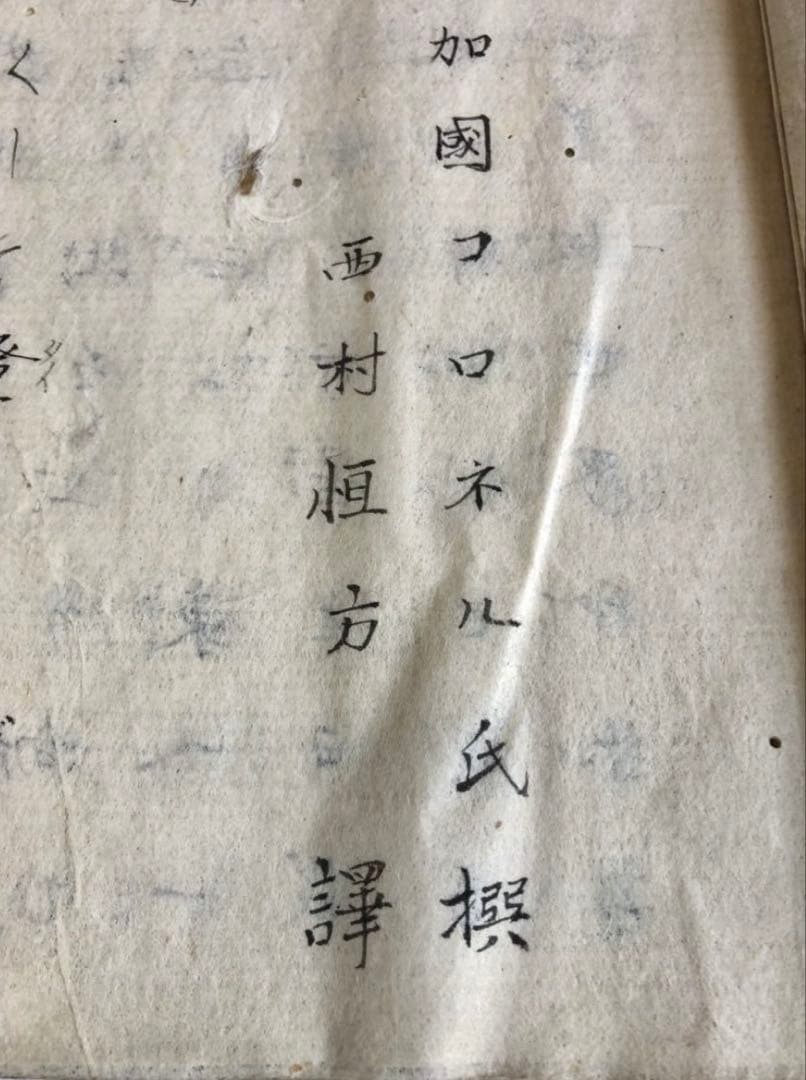 加國コロネル氏撰
西村恒方譯